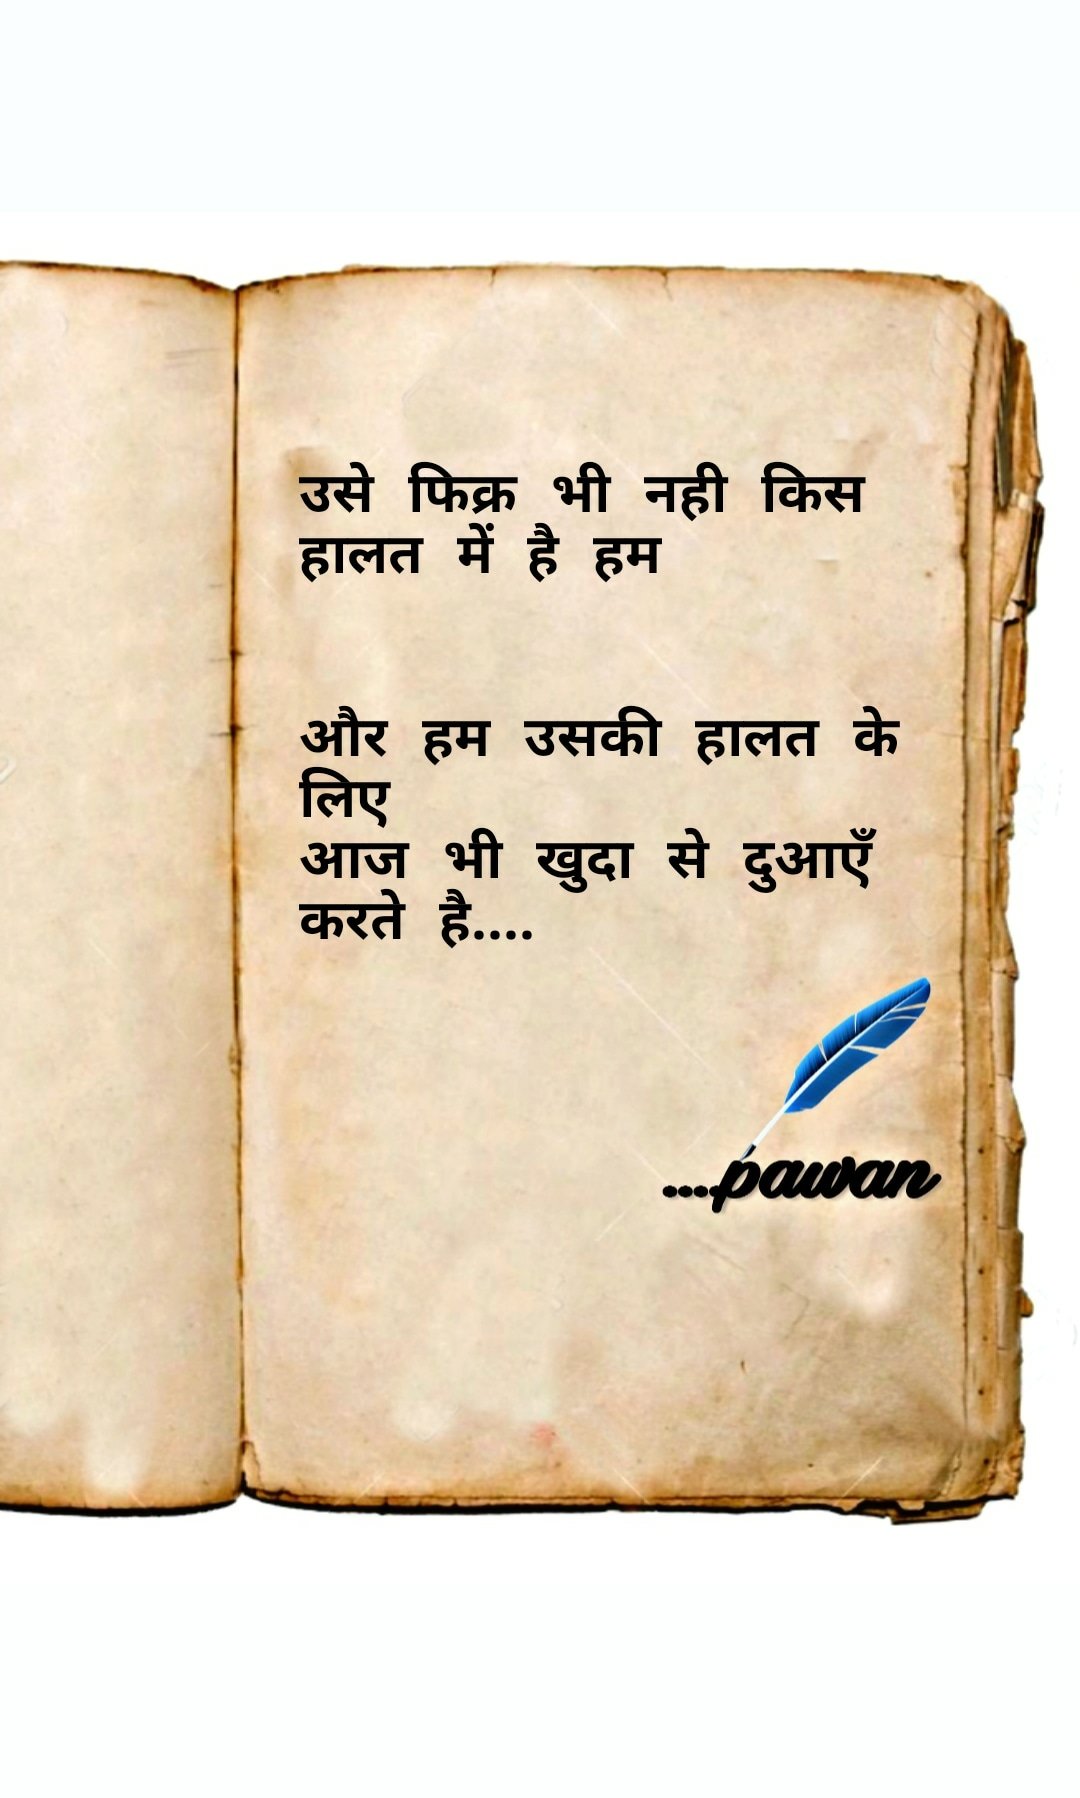 उसे फिक्र भी नही किस
हालत में है हम
और हम उसकी हालत के
लिए
आज भी खुदा से दुआएँ
करते है....
....pawan